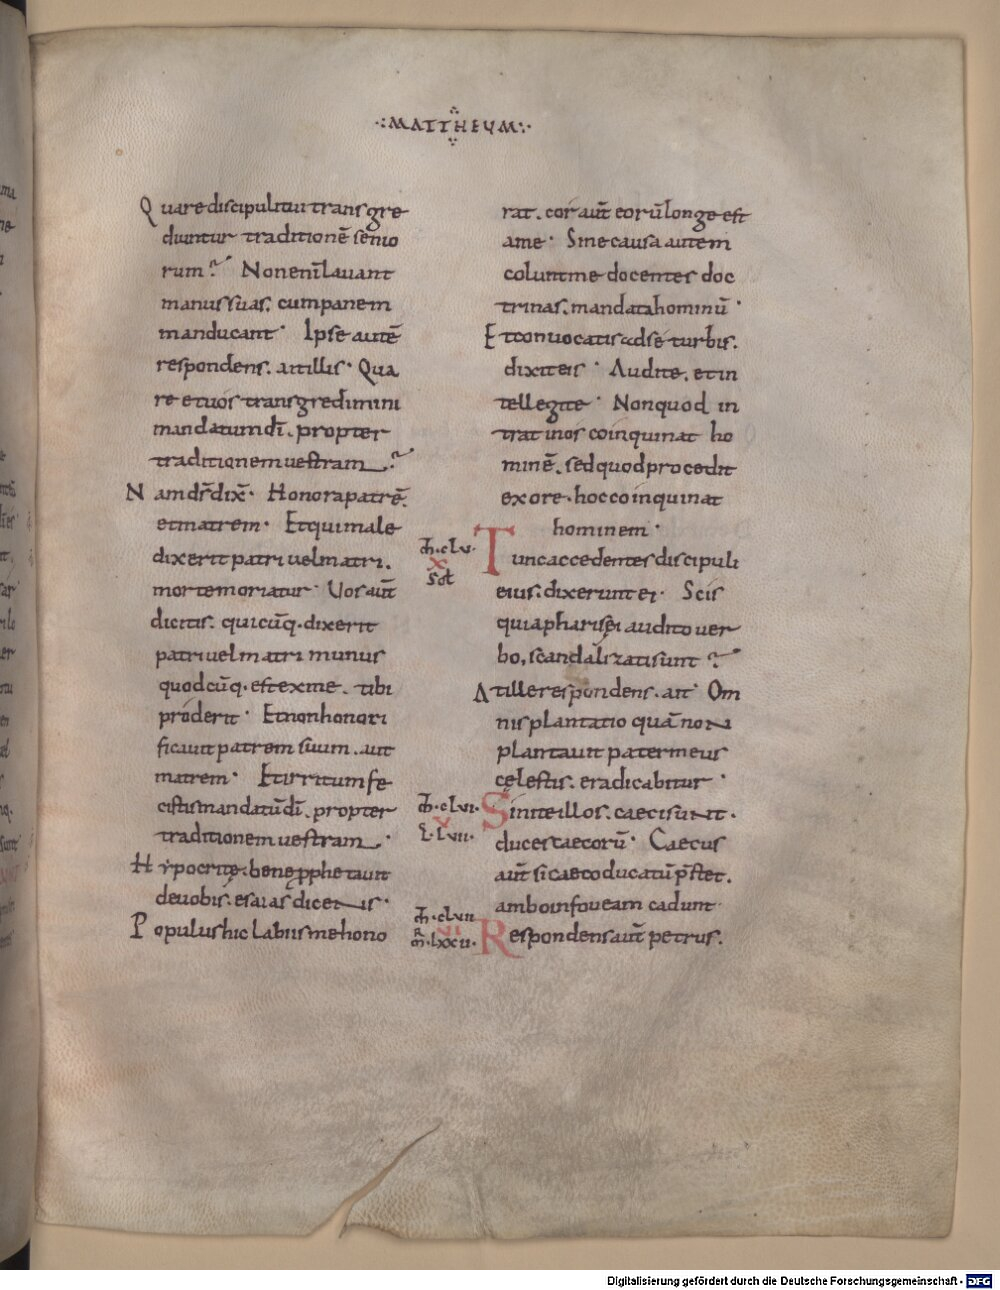 ·:MATTHEUM:·
Quare discipuli tui transgre
diuntur traditionē senio
rum? Non enī lauant
manus suas. cum panem
manducant· Ipse autē
respondens. ait illis· Qua
re et uos transgredimini
mandatum dī. propter
traditionem uestram?
Nam d̄s dix̄· Honora patrē.
et matrem· Et qui male
dixerit patri uel matri.
morte moriatur· Uos aūt
dicitis. quicūq· dixerit
patri uel matri munus
quodcūq· est ex me. tibi
proderit· Et non honori
ficauit patrem suum. aut
matrem· Et irritum fe
cistis mandatū dī. propter
traditionem uestram·
Hypocritę· bene ꝓphetauit
de uobis. esaias dicens·
Populus hic labiis me hono
rat. cor aūt eorū longe est
a me· Sine causa autem
colunt me docentes doc
trinas. mandata hominū·
Et conuocatis ad se turbis.
dixit eis· Audite. et in
tellegite· Non quod in
trat in os coinquinat ho
minē. sed quod procedit
ex ore· hoc coinquinat
hominem·
m̄·clv·
x
sol
Tunc accedentes discipuli
eius. dixerunt ei· Scis
quia pharisęi audito uer
bo. scandalizati sunt?
At ille respondens. ait· Om
nis plantatio quā non
plantauit pater meus
cęlestis. eradicabitur·
m̄·clvi·
v
l·lvii·
Sinite illos. caeci sunt·
duces caecorū· Caecus
aūt si caeco ducatū p̄stet.
ambo in foueam cadunt·
m̄·clvii
vi
m̄r·lxxii·
Respondens aūt petrus.
Digitalisierung gefördert durch die Deutsche Forschungsgemeinschaft - DFG